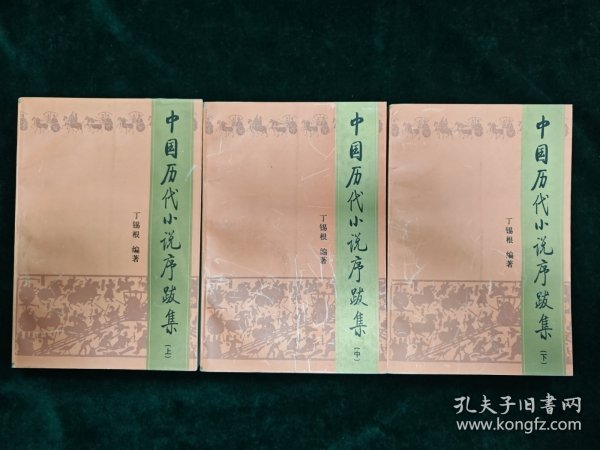 中国历代小说序跋集(上)
丁锡根 编著
中国历代小说序跋集(中)
丁锡根 编著
中国历代小说序跋集(下)
丁锡根 编著
孔夫子旧书网
www.kongfz.com